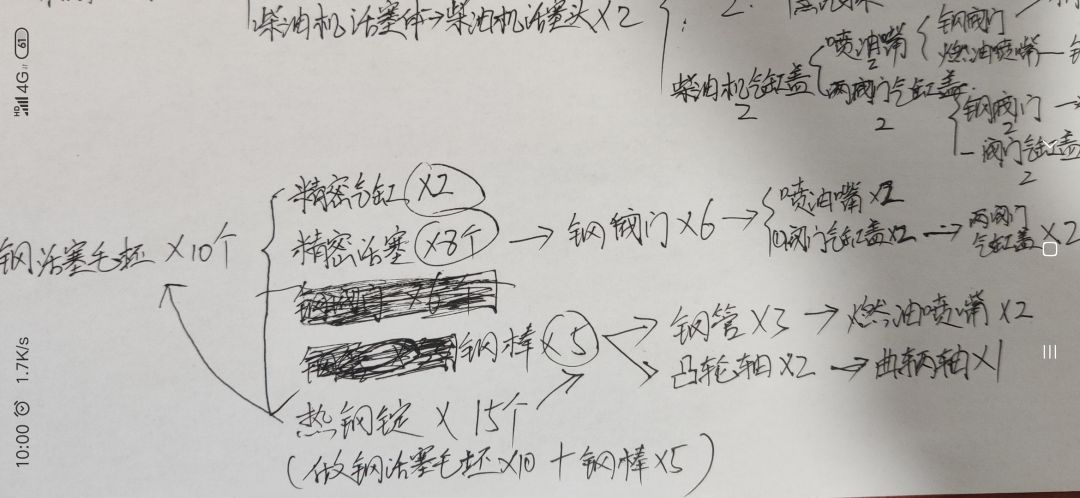 柴油机活塞体→柴油机活塞头×2
2.
柴油机气缸盖
2
喷油嘴
2
两阀门气缸盖
2
钢阀门
燃油喷嘴
钢阀门
2
一阀门气缸盖
2
钢活塞毛坯×10个
精密气缸×2
精密活塞×8个→钢阀门×6→
喷油嘴×2
(1)阀门气缸盖×2→两阀门气缸盖×2
钢棒×5
钢管×3→燃油喷嘴×2
凸轮轴×2→曲柄轴×1
热钢锭×15个
(做钢活塞毛坯×10+钢棒×5)
10:00
1.7K/s
HD 4G
61